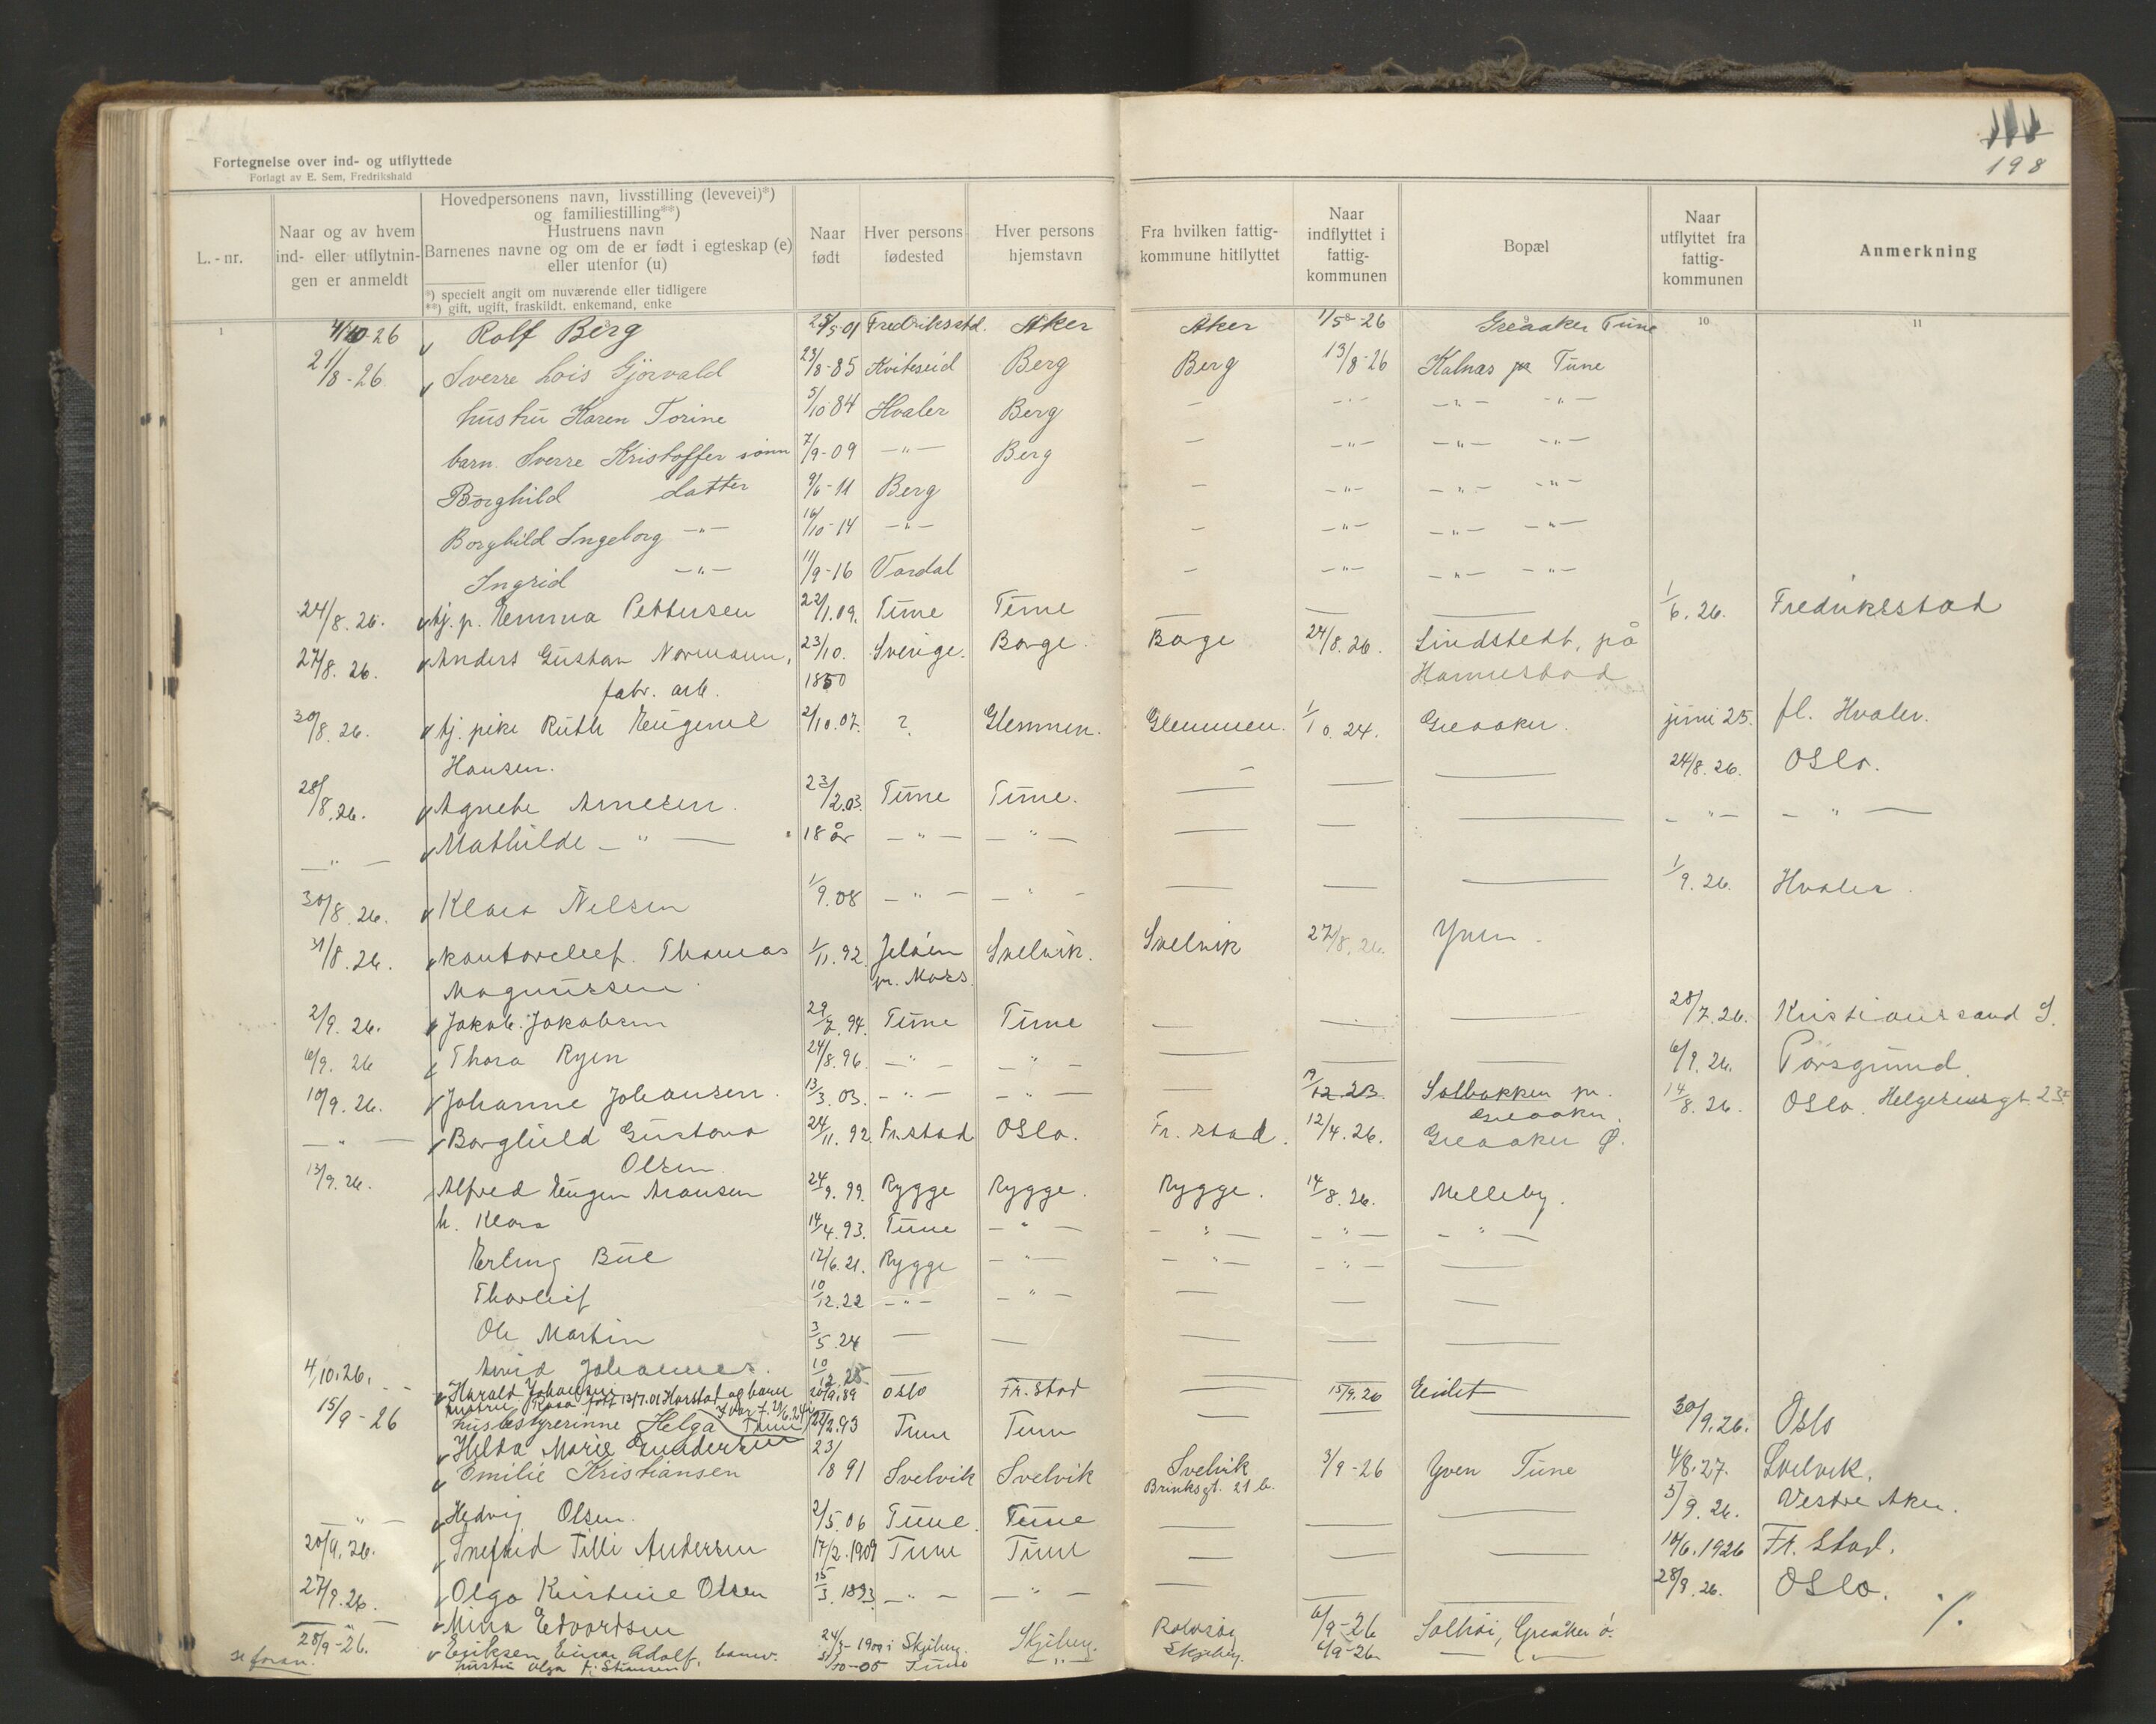 111
198
Fortegnelse over ind- og utflyttede
Forlagt av E. Sem, Fredrikshald
L.-nr.
Naar og av hvem ind- eller utflytningen er anmeldt
Hovedpersonens navn, livsstilling (levevei)*)
og familiestilling**)
Hustruens navn
Barnenes navne og om de er født i egteskap (e)
eller utenfor (u)
*) specielt angit om nuværende eller tidligere
**) gift, ugift, fraskildt, enkemand, enke
Naar født
Hver persons fødested
Hver persons hjemstavn
Fra hvilken fattigkommune hitflyttet
Naar indflyttet i fattigkommunen
Bopæl
Naar utflyttet fra fattigkommunen
Anmerkning
1 9 10 11
4/10-26 Rolf Berg 25/5-01 Fredriksstd. Aker Aker 1/5-26 Greaaker Tune
21/8-26 Sverre Lois Gjörvald 23/8-85 Kviteseid Berg Berg 13/8-26 Kalnæs pr Tune
hustru Karen Torine 5/10 84 Hvaler Berg - -"- -"- -"-
barn. Sverre Kristoffer sönn 7/9-09 -"- Berg - -"- -"- -"-
Borghild datter 9/6-11 Berg - -"- -"- -"-
Borghild Ingeborg -"- 16/10-14 -"- - -"- -"- -"-
Ingrid -"- 11/9-16 Vardal - -"- -"- -"-
24/8.26. tj. p. Emma Pettersen 22/1.09. Tune Tune — — — 1/6.26. Fredrikstad
27/8.26. Anders Gustav Normann, 23/10. Sverige. Borge. Borge 24/8.26. Lindstedt, på
fabr. arb. 1850 Hannestad
30/8.26. tj. pike Ruth Eugenie 2/10.07. ? Glemmen. Glemmen. 1/10.24. Greaaker. juni 25. fl. Hvaler.
Hansen. - — — 24/8.26. Oslo.
28/8.26. Agnete Arnesen. 23/2.03. Tune Tune. — — — -"- -"-
—"— Mathilde -"- 18 år -"- -"- — —
30/8.26. Klara Nilsen 1/9.08 -"- -"- — — — 1/9.26. Hvaler.
31/8.26. kontorchef. Thomas 1/11.92. Jeløen Svelvik. Svelvik 27/8.26. Yven.
Magnussen. pr. Moss.
2/9.26. Jakob Jakobsen 29/7.94. Tune Tune — — — 28/7.26. Kristiansand S.
6/9.26 Thora Ryen 24/8.96. -"- -"- — — — 6/9.26. Porsgrund.
10/9.26. Johanne Johansen. 13/3.03. -"- -"- — 19/12.23. Solbakken pr. 14/8.26. Oslo. Helgesensgt. 23
Greaaker.
—"— Borghild Gustava 24/11.92. Fr.stad Oslo. Fr. stad. 12/4.26. Greaaker Ø.
Olsen.
13/9.26. Alfred Eugen Hansen 24/9.99. Rygge Rygge. Rygge. 14/8.26. Melleby.
h. Klara 14/4.93. Tune -"- -"- -"- -"-
Erling Bül 12/6.21. Rygge -"- -"- -"- —
Thorleif 10/12.22 -"- -"- — — —
Ole Martin 3/5.24 — — — — —
Arvid Johannes. 10/12.25 —
4/10.26. Harald Johansen 20/9.89 oslo Fr.stad — 15/9.26 Enlet
hustru Rosa født 13/7.01 Harstad og barn
15/9-26 husbestyrerinne Helga 22/2.93 Tune Tune — — 30/9.26. Oslo
Hilda Marie Gundersen
Emilie Kristiansen 23/8 91 Svelvik Svelvik Svelvik 3/9-26 Yven Tune 4/8.27. Svelvik.
Brinksgt. 21 b.
—"— Hedvig Olsen. 2/5.06 Tune. Tune — — — 5/9.26. Vestre Aker.
20/9.26. Snefrid Tilli Andersen 17/2.1909 Tune Tune — — — 14/6.1926 Fr. Stad.
27/9.26. Olga Kristine Olsen 15/3.1893 -"- -"- — — — 28/9.26. Oslo.
—"— Mina Edvardsen Rolvsøy 6/9-26 Solhøi, Greåker ö. %.
28/9-26. Eriksen Einar Adolf, 24/3-1900 i Skjeberg. Skjeberg. Skjeberg. 4/9-26 — —
se foran. hustru Olga 5/10-05 Tune -"-